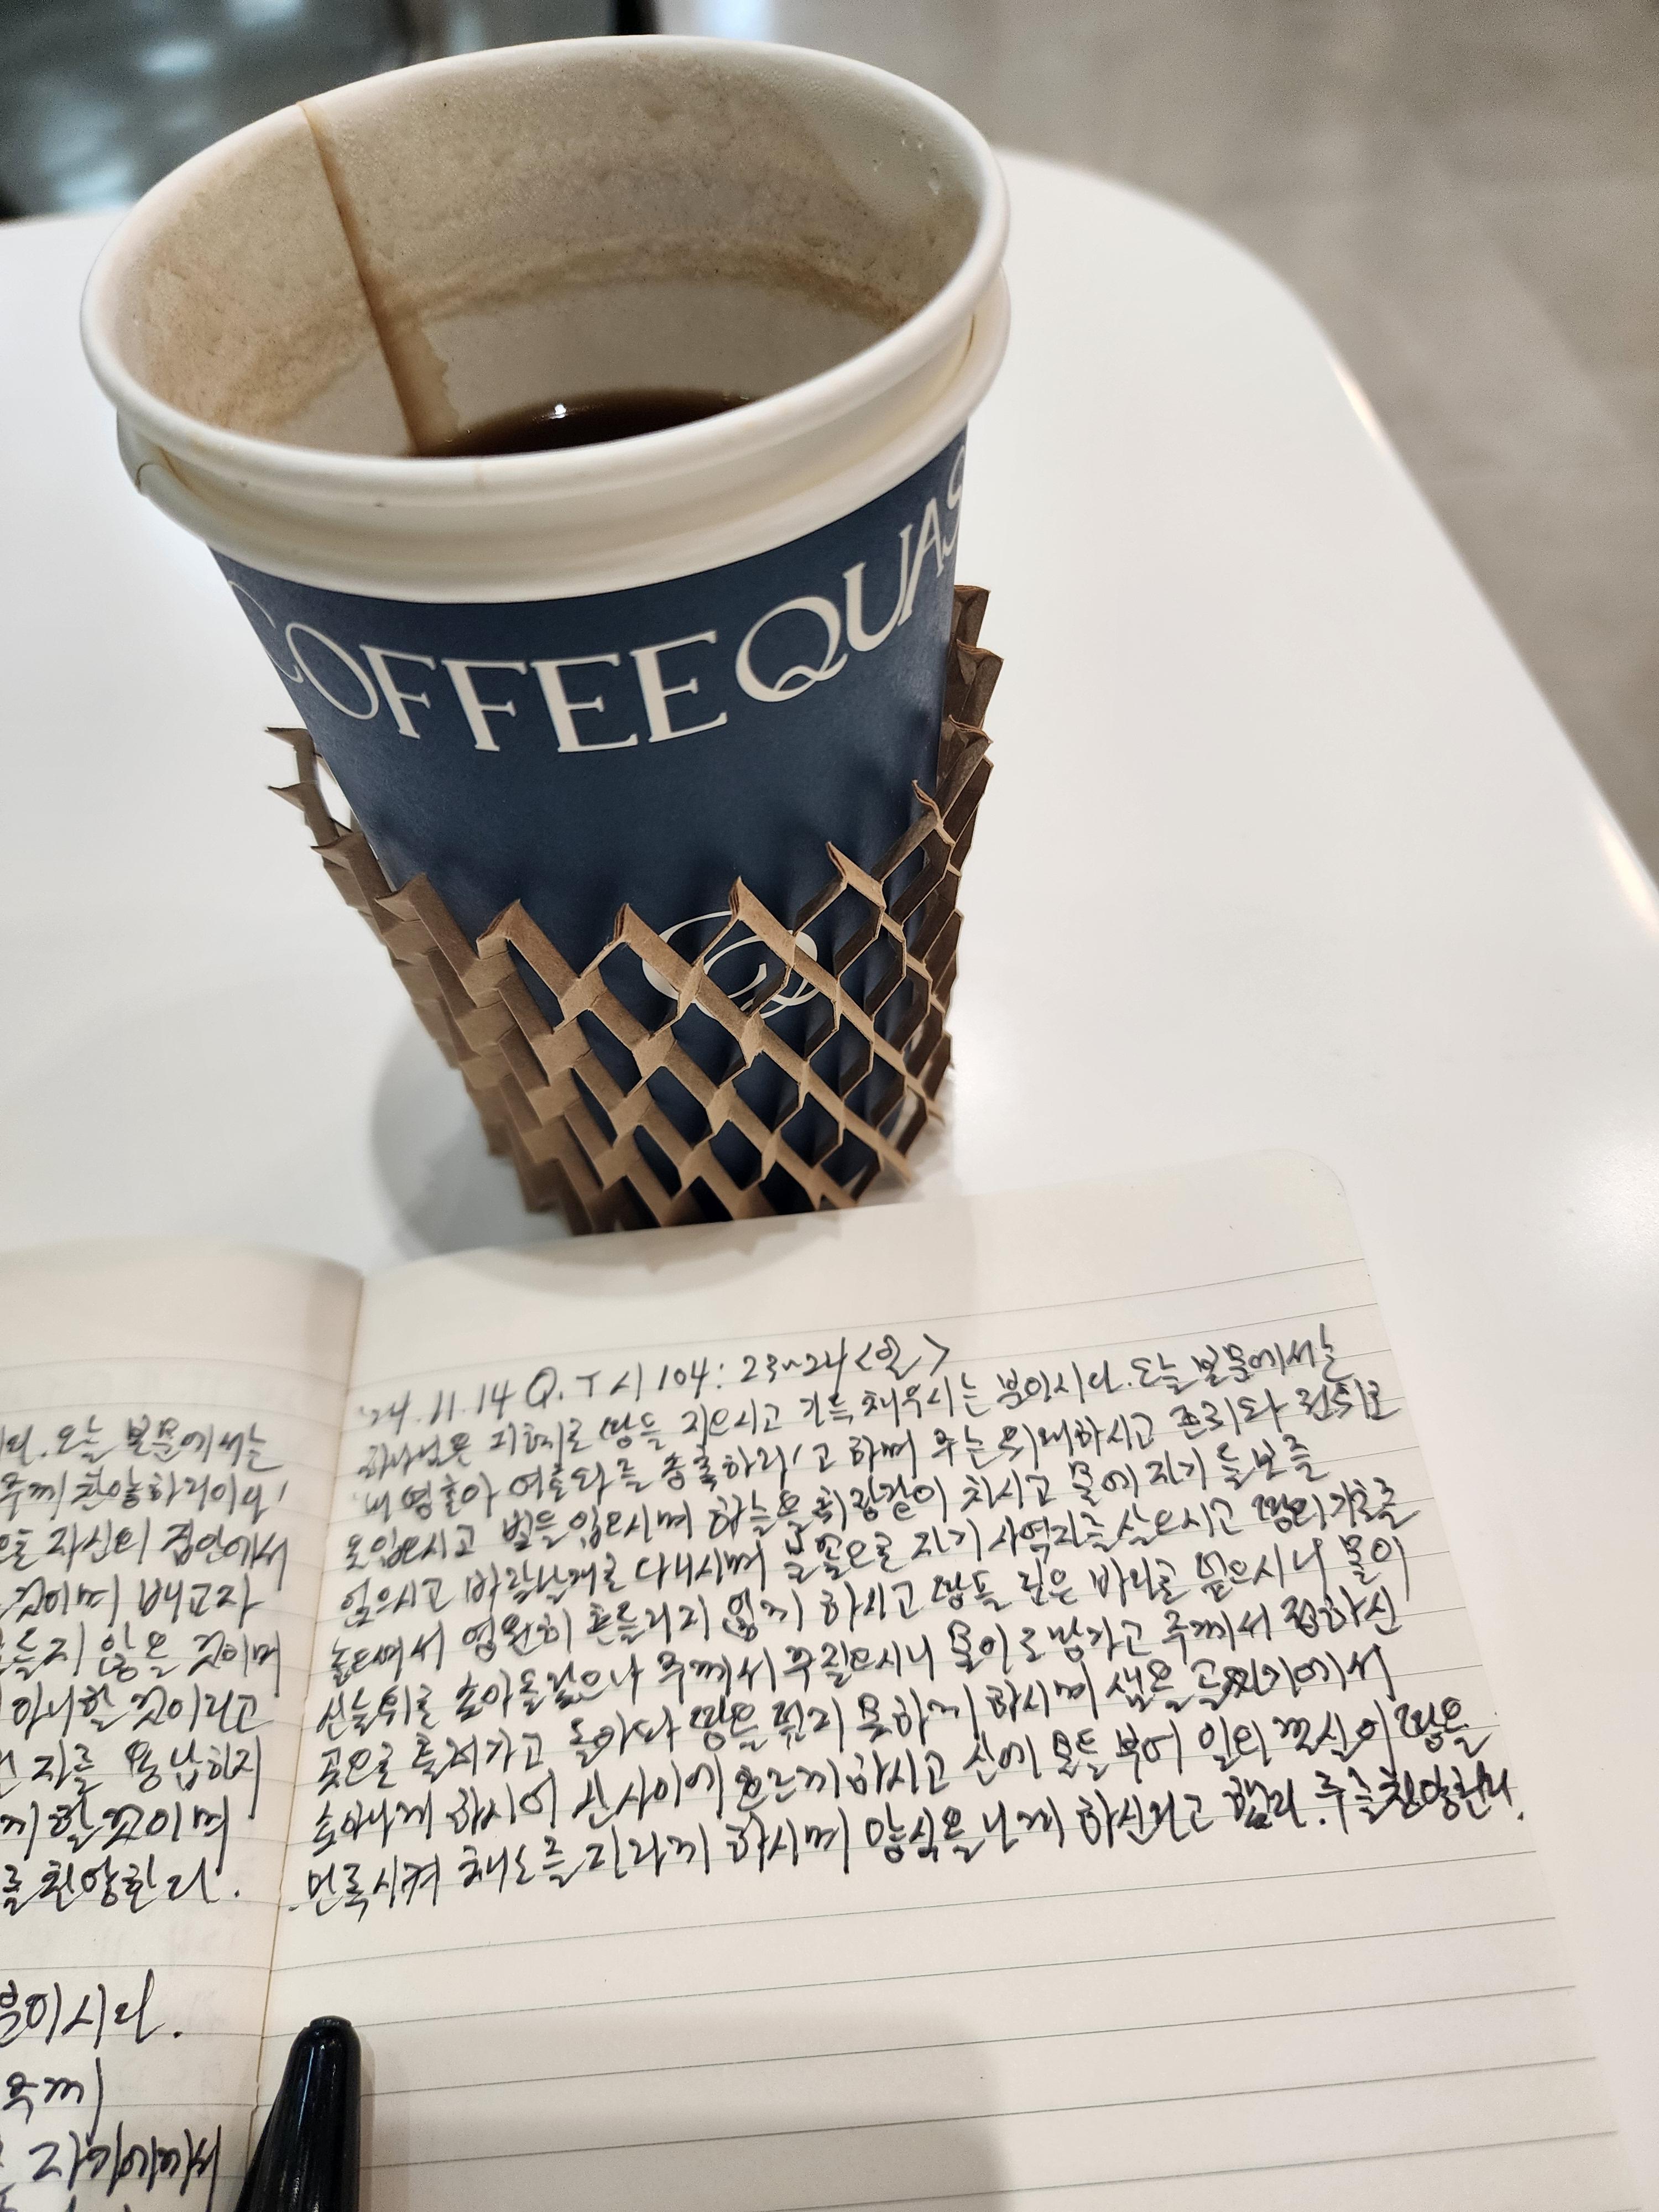 COFFEE QUAS
'24.11.14 Q.T 시 104: 23~24 <일>
하나님은 지혜로 땅을 지으시고 가득 채우시는 분이시다. 오늘 본문에서는
'내 영혼아 여호와를 송축하라'고 하며 주는 위대하시고 존귀와 권위로
옷입으시고 빛을 입으시며 하늘을 휘장같이 치시고 물에 자기 들보를
얹으시고 바람날개로 다니시며 불꽃으로 자기 사역자를 삼으시고 땅의 기초를
놓으셔서 영원히 흔들리지 않게 하시고 땅을 깊은 바다로 덮으시니 물이
산들 위로 솟아올랐으나 주께서 꾸짖으시니 물이 도망가고 주께서 정하신
곳으로 흘러가고 돌아와 땅을 덮지 못하게 하시며 샘을 골짜기에서
솟아나게 하시어 산 사이에 흐르게 하시고 산에 물을 부어 일의 결실이 땅을
만족시켜 채소를 자라게 하시며 양식을 나게 하신다고 한다. 주를 찬양한다.
오늘 본문에서는
주께 찬양하리이다'
자신의 집안에서
것이며 배교자
않을 것이며
아니할 것이라고
자를 용납하지
할 것이며
를 찬양한다.
분이시다.
주께
자기에게서